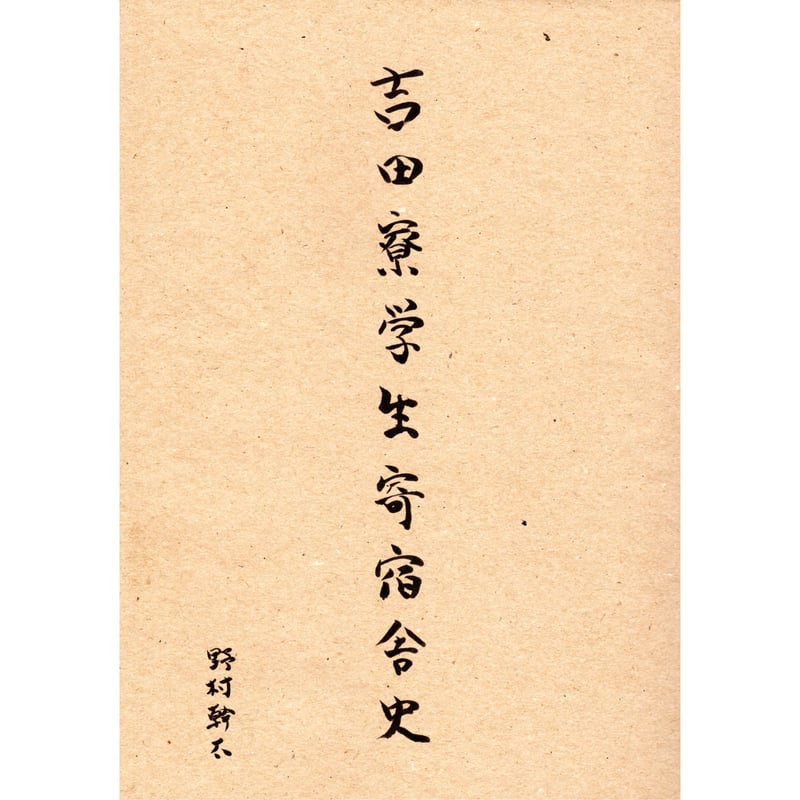 吉田寮学生寄宿舎史
野村幹太